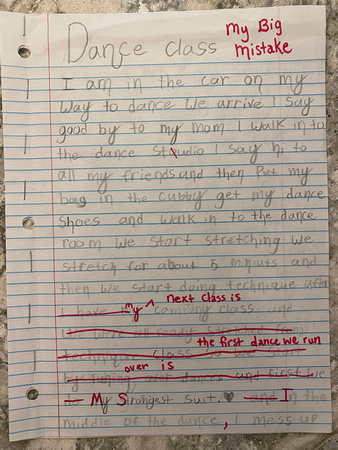 Dance class My Big Mistake
I am in the car on my
way to dance We arrive I say
good by to my mom I walk in to
the dance studio I say hi to
all my friends and then Put my
bag in the cubby get my dance
Shoes and walk in to the dance
room We start stretching We
stretch for about 5 miniuts and
then we start doing technique after
I have my next class is company class and
We were all ready streched from
the first dance we run
technique class so we start
over is
by runing over dance and first we
do My Strongest Suit. and In the
middle of the dance, mess up